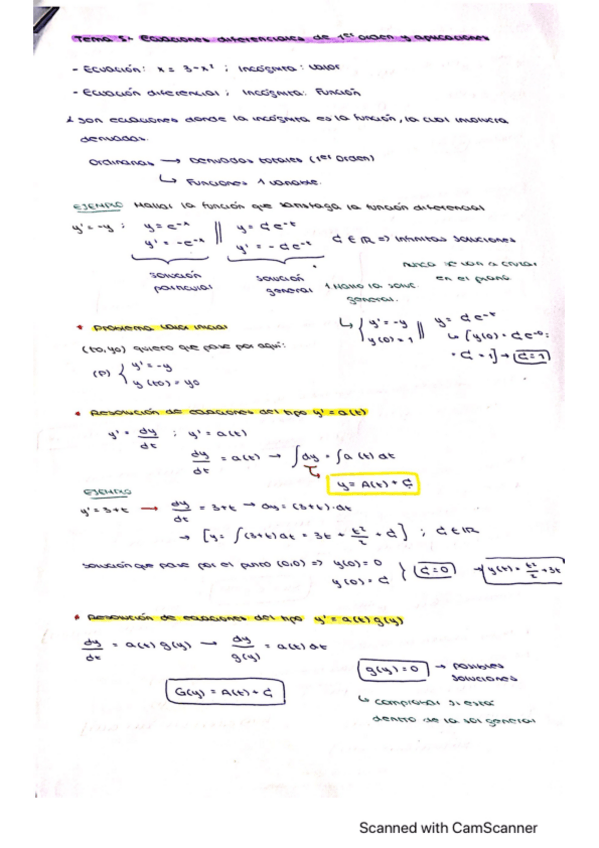 Tema 5.- Ecuaciones diferenciales de 1er orden y aplicaciones
- Ecuación: x = 3-x² ; Incógnita: valor
- Ecuación diferencial ; Incógnita: Función
Son ecuaciones donde la incógnita es la función, la cual involucra
derivadas.
Ordinarias → Derivadas totales (1er orden)
↳ Funciones 1 variable.
EJEMPLO Hallar la función que satisfaga la función diferencial
y' = -y ; y = e^-x || y = C e^-t
y' = -e^-x || y' = -C e^-t C ∈ ℝ => Infinitas soluciones
solución particular
solución general
nunca se van a cruzar
en el plano
1. Hallo la soluc.
general.
• Problema valor inicial
(t0, y0) quiero que pase por aquí:
(P) { y' = -y
y(t0) = y0
↳ { y' = -y || y = C e^-t
y(0) = 1 ↳ [y(0) = C e^-0 =
= C = 1] → C = 1
• Resolución de ecuaciones del tipo y' = a(t)
y' = dy/dt ; y' = a(t)
dy/dt = a(t) → ∫dy = ∫a(t) dt
y = A(t) + C
EJEMPLO
y' = 3+t → dy/dt = 3+t → dy = (3+t)·dt
→ [y = ∫(3+t)dt = 3t + t²/2 + C] ; C ∈ ℝ
solución que pase por el punto (0,0) => y(0) = 0
y(0) = C } C = 0 → y(t) = t²/2 + 3t
• Resolución de ecuaciones del tipo y' = a(t) g(y)
dy/dt = a(t) g(y) → dy/g(y) = a(t) dt
g(y) = 0 → posibles
soluciones
G(y) = A(t) + C
↳ comprobar si está
dentro de la sol general
Scanned with CamScanner